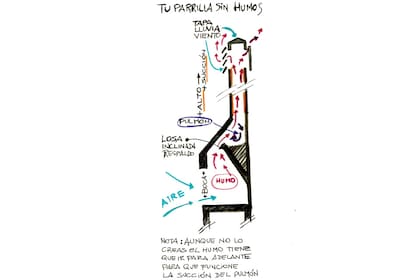 TU PARRILLA SIN HUMOS
TAPA
LLUVIA
VIENTO
+ ALTO → + SUCCIÓN
PULMÓN
LOSA
INCLINADA
RESPALDO
HUMO
+ BOCA +
AIRE
NOTA: AUNQUE NO LO
CREAS EL HUMO TIENE
QUE IR PARA ADELANTE
PARA QUE FUNCIONE
LA SUCCIÓN DEL PULMÓN